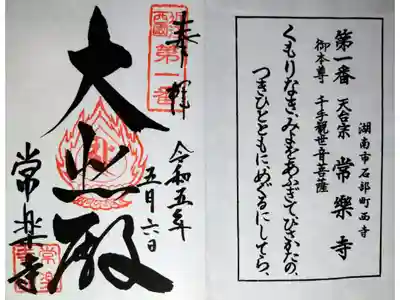 湖南市石部町西寺
第一番 天台宗 常樂寺
御本尊 千手観世音菩薩
くもりなき、みよをあふぎてひさかたの、
つきひとともにめぐるにしてら、
奉拝
第一番
令和五年
五月六日
大悲殿
常楽寺